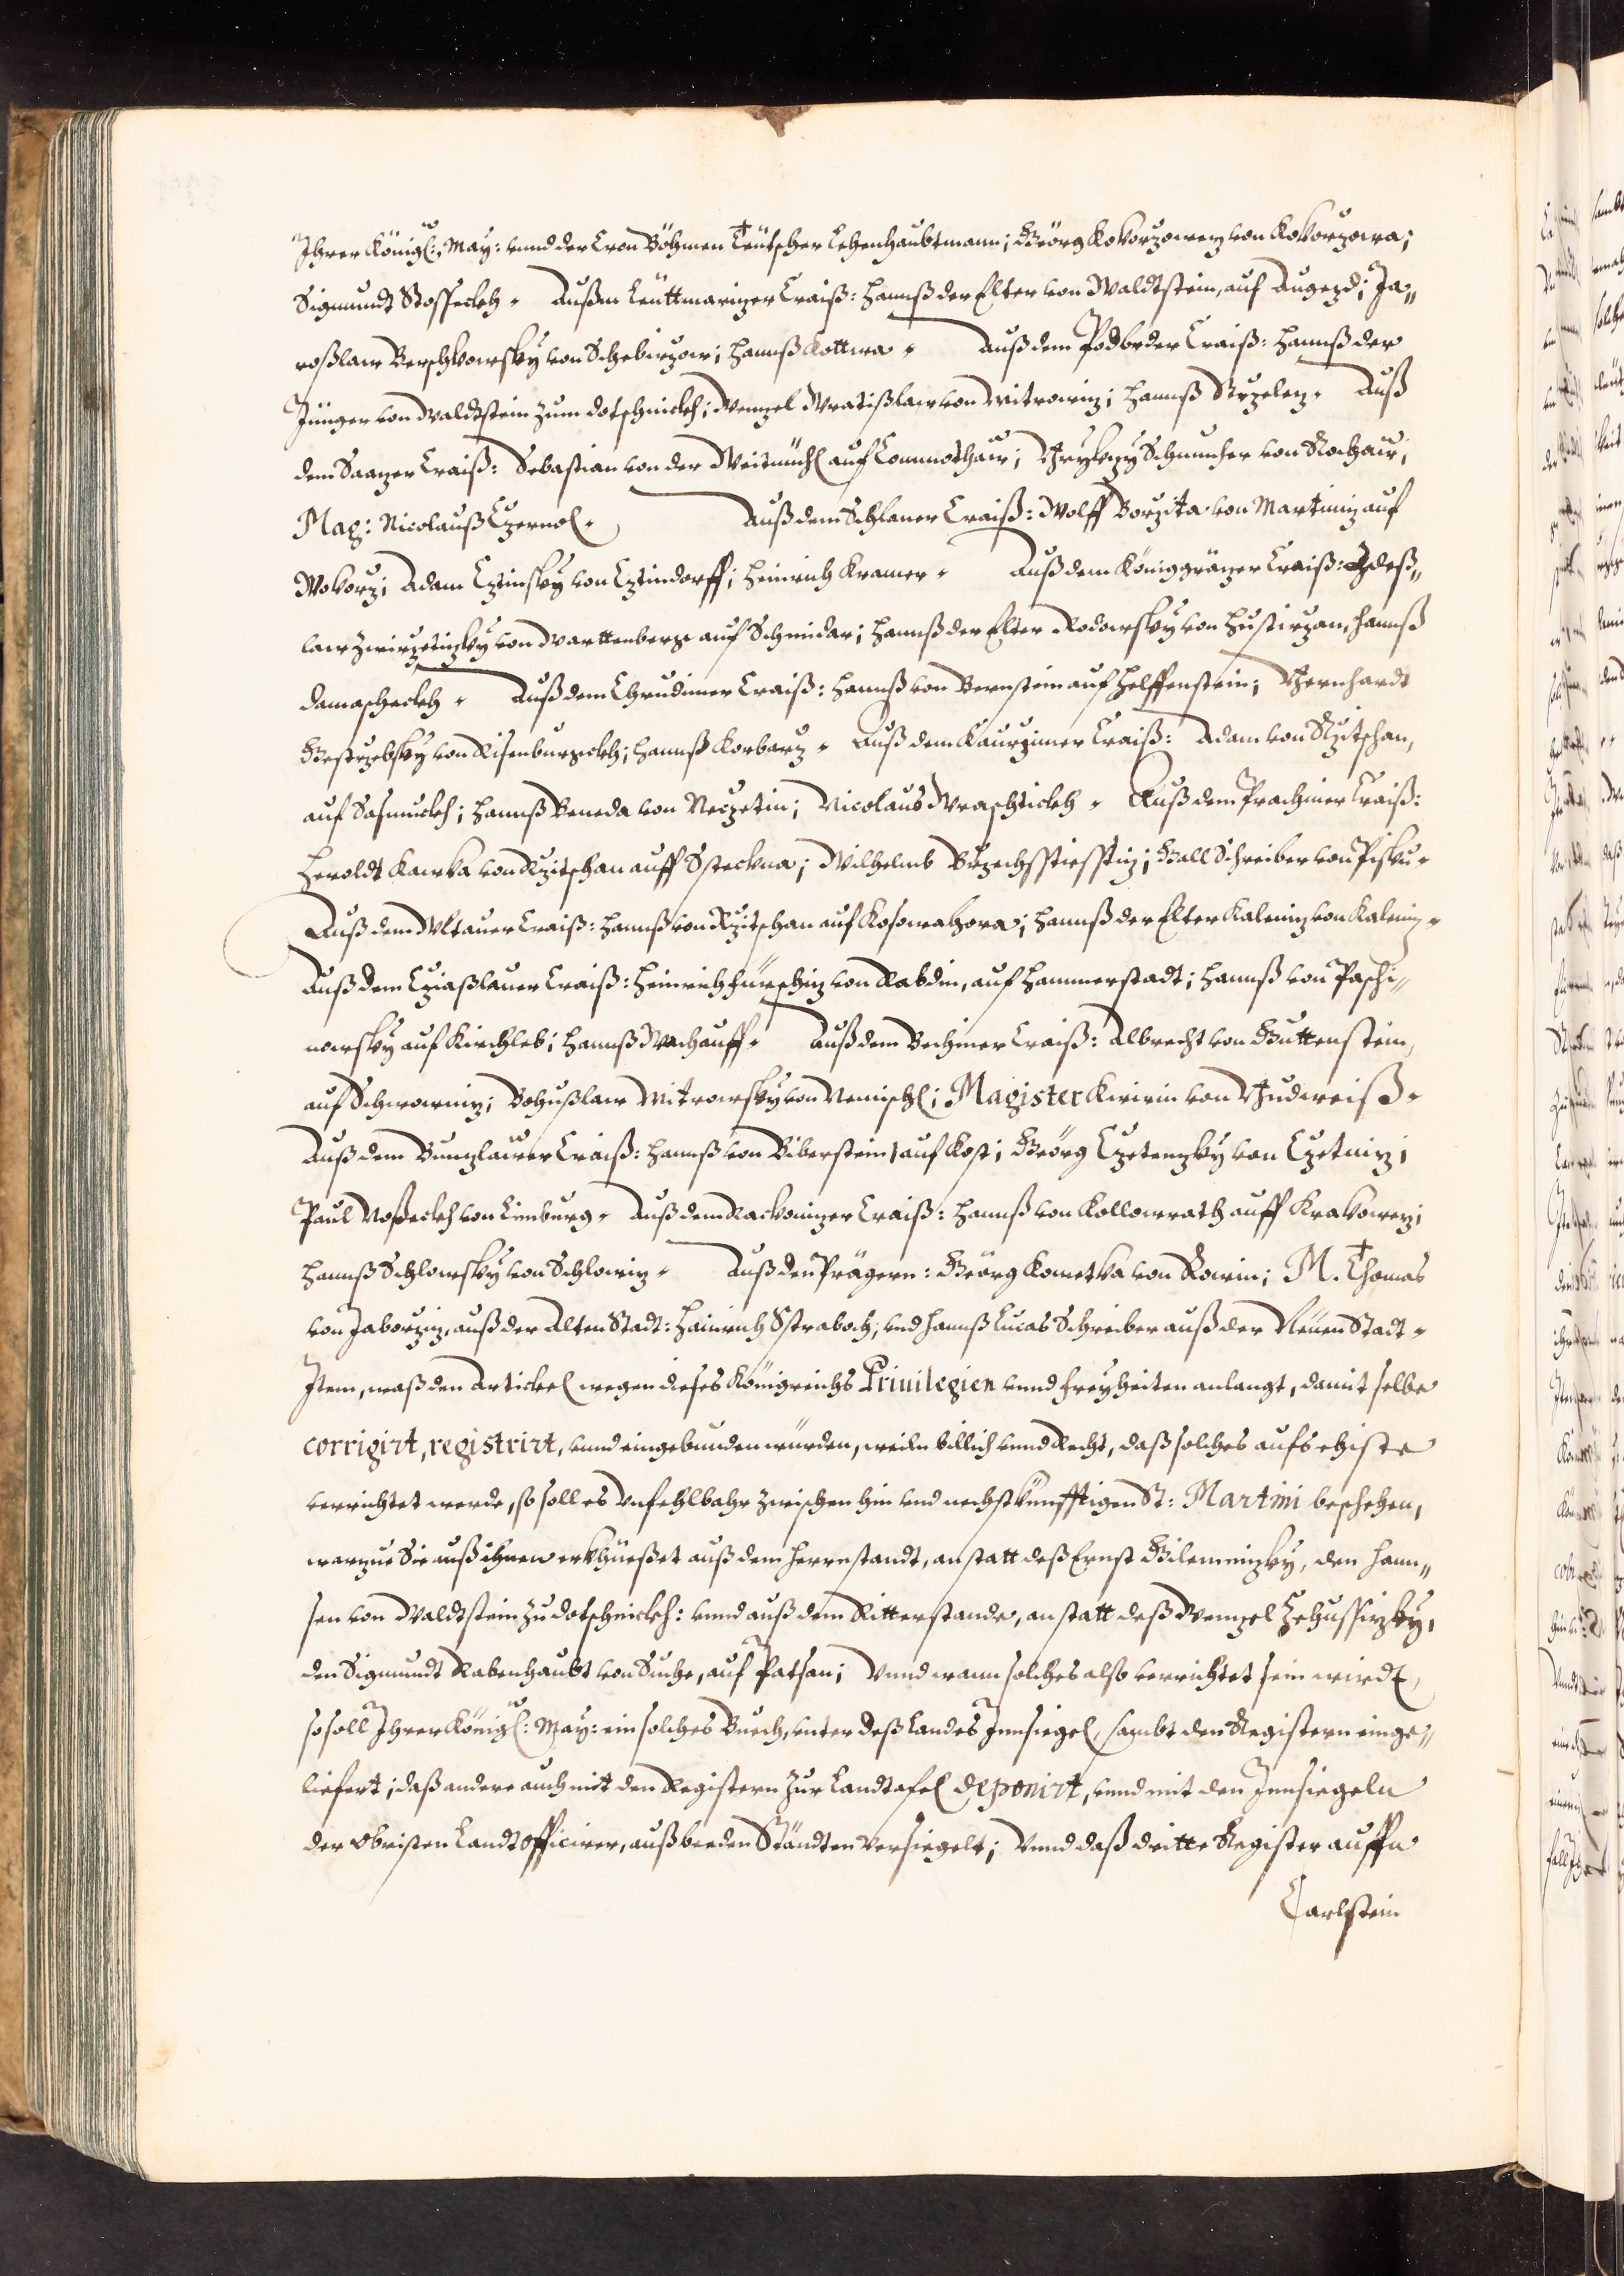 Ihrer Königl: May: vnnd der Cron Böhmen Teütscher Lehenhaubtmann; Geörg Kokorzowez von Kokorzowa;
Sigmundt Stosseckh. Außm Leüttmarizer Craiß: Hannß der Elter von Waldtstein, auf Augezd; Ja„
roßlaw Berschkowsky von Schebirzow; Hannß Kottwa. Auß dem Podbrder Craiß: Hannß der
Jünger von Waldtstein zum Dotschnickh; Wenzel Wratißlaw von Mitrowiz; Hannß Strzelez. Auß
dem Saazer Craiß: Sebastian von der Weitmühl auf Commothaw; Schmucher von Rochaw;
Mag: Nicolauß Czernol. Auß dem Schlaner Craiß: Wolff Borzita von Martiniz auf
Wokorz; Adam Cztinsky von Cztindorff; Heinrich Kramer. Auß dem Königgräzer Craiß: Zdeß„
law Zwirzetizky von Warttenberg auf Schmidar; Hannß der Elter Rodowsky von Hustirzan, Hannß
Damascheckh. Auß dem Chrudimer Craiß: Hannß von Bernstein auf Helffenstein; Bernhardt
Gestrzebsky von Risenburgickh; Hannß Korbarz. Auß dem Kaurzimer Craiß: Adam von Rzitschan,
auf Sasmuckh; Hannß Beneda von Neczetin; Nicolaus Wraschtickh. Auß dem Prachiner Craiß:
Heroldt Kawka von Rzitschan auff Steckna; Wilhelmb; Gall Schreiber von Pisku.
Auß dem Wltauer Craiß: Hannß von Rzitschan auf Kosowahora; Hannß der Elter Kaleniz von Kaleniz.
Auß dem Cziaßlauer Craiß: Heinrich Fürschiz von Nabdin, auf Hammerstadt; Hannß von Paschi„
nowsky auf Kirchleb; Hannß Machauff. Auß dem Bechiner Craiß: Albrecht von Guttenstein,
auf Schwowniz; Bohußlaw Mitrowsky von Nemischl; Magister Kwirin von Budweiß.
Auß dem Bunzlawer Craiß: Hannß von Biberstein, auf Kost; Geörg Czetenzky von Czetniz;
Paul Voßeckh von Limburg. Auß dem Rackonizer Craiß: Hannß von Kollowrath auff Krakowez;
Hannß Schlowsky von Schlowiz. Auß den Prägern: Geörg Kometka von Rowin; M. Thomas
von Jaworziz, auß der Alten Stadt: Hainrich Straboch, vnd Hannß Lucas Schreiber auß der Neüen Stadt.
Item, waß den Artickel wegen dieses Königreichs Priuilegien vnnd Freyheiten anlangt, damit selbe
corrigirt, registrirt, vnnd eingebunden würden, weiln billich vnnd Recht, daß solches aufs ehiste
verrichtet werde, so soll es vnfehlbahr zwischen hin vnd nechstkünfftigen St: Martini beschehen,
warzue Sie auß ihnen erkhüeßet auß dem Herrnstandt, anstatt deß Ernst Gilemnizky, den Hann„
sen von Waldtstein zu Dotschnickh: vnnd auß dem Ritterstande, anstatt deß Wenzel Zehussizky,
den Sigmundt Rabenhaubt von Suche, auf Patsau; Vnnd wann solches also verrichtet sein wirdt,
so soll Ihrer Königl: May: ein solches Buech, vnter deß Landes Innsiegel, sambt den Registern einge„
liefert; daß andere auch mit den Registern zur Landtafel deponirt, vnnd mit den Innsiegeln
der Obristen Landtofficirer, auß beeden Ständten versiegelt; Vnnd daß dritte Register auffn
Carlstein